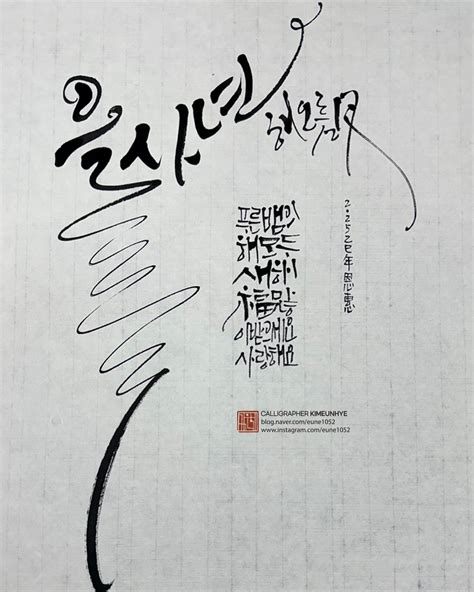 을사년
해오름月
2.25乙巳年恩惠
푸른뱀의
해모두
새해
福많
이받으세요
사랑해요
CALLIGRAPHER KIMEUNHYE
blog.naver.com/eune1052
www.instagram.com/eune1052